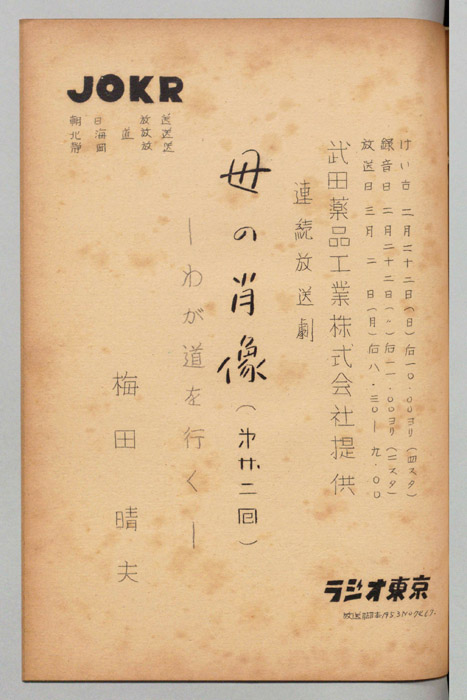 けい古 二月二十二日(日)后一〇.〇〇ヨリ(四スタ)
録音日 二月二十二日(〃)后一一.〇〇ヨリ(二スタ)
放送日 三月 二 日(月)后八.三〇—九.〇〇
武田薬品工業株式会社提供
連続放送劇
母の肖像(第廿二回)
—わが道を行く—
梅田晴夫
JOKR
朝日放送
北海道放送
静岡放送
ラジオ東京
放送脚本1953